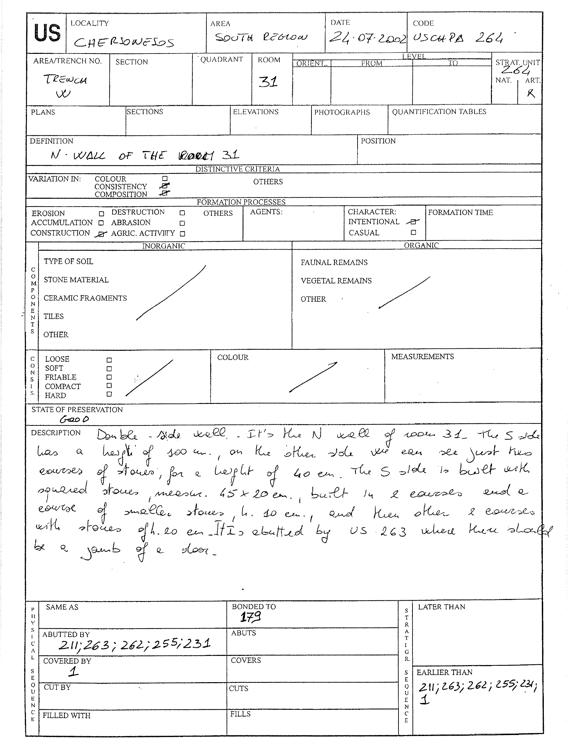 US
LOCALITY
CHERSONESOS
AREA
SOUTH REGION
DATE
24.07.2002
CODE
USCHPA 264
AREA/TRENCH NO.
TRENCH
W
SECTION
QUADRANT
ROOM
31
LEVEL
ORIENT. FROM TO
STRAT. UNIT
264
NAT. ART.
R
PLANS
SECTIONS
ELEVATIONS
PHOTOGRAPHS
QUANTIFICATION TABLES
DEFINITION
N. WALL OF THE ROOM 31
POSITION
DISTINCTIVE CRITERIA
VARIATION IN: COLOUR
CONSISTENCY
COMPOSITION
OTHERS
FORMATION PROCESSES
EROSION DESTRUCTION OTHERS
ACCUMULATION ABRASION
CONSTRUCTION AGRIC. ACTIVITY
AGENTS:
CHARACTER:
INTENTIONAL
CASUAL
FORMATION TIME
COMPONENTS
INORGANIC
TYPE OF SOIL
STONE MATERIAL
CERAMIC FRAGMENTS
TILES
OTHER
ORGANIC
FAUNAL REMAINS
VEGETAL REMAINS
OTHER
CONSIS.
LOOSE
SOFT
FRIABLE
COMPACT
HARD
COLOUR
MEASUREMENTS
STATE OF PRESERVATION
GOOD
DESCRIPTION Double-side wall. It's the N wall of room 31. The S side
has a height of 100 cm., on the other side we can see just two
courses of stones, for a height of 40 cm. The S side is built with
squared stones, measur. 45x20 cm., built in 2 courses and a
course of smaller stones, h. 10 cm., and then other 2 courses
with stones of h. 20 cm. It Is abutted by US 263 where there should
be a jamb of a door.
PHYSICAL SEQUENCE
SAME AS
BONDED TO
179
ABUTTED BY
211; 263; 262; 255; 231
ABUTS
COVERED BY
1
COVERS
CUT BY
CUTS
FILLED WITH
FILLS
STRATIGR. SEQUENCE
LATER THAN
EARLIER THAN
211; 263; 262; 255; 231;
1